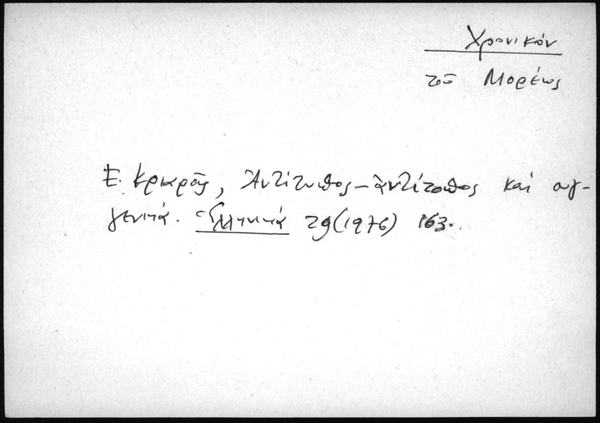 Χρονικόν
τοῦ Μορέως
Ε. Κριαρᾶς, Ἀντίτυπος – ἀντίτοπος καὶ συγ-
γενικά. Ἑλληνικά 29 (1976) 163.